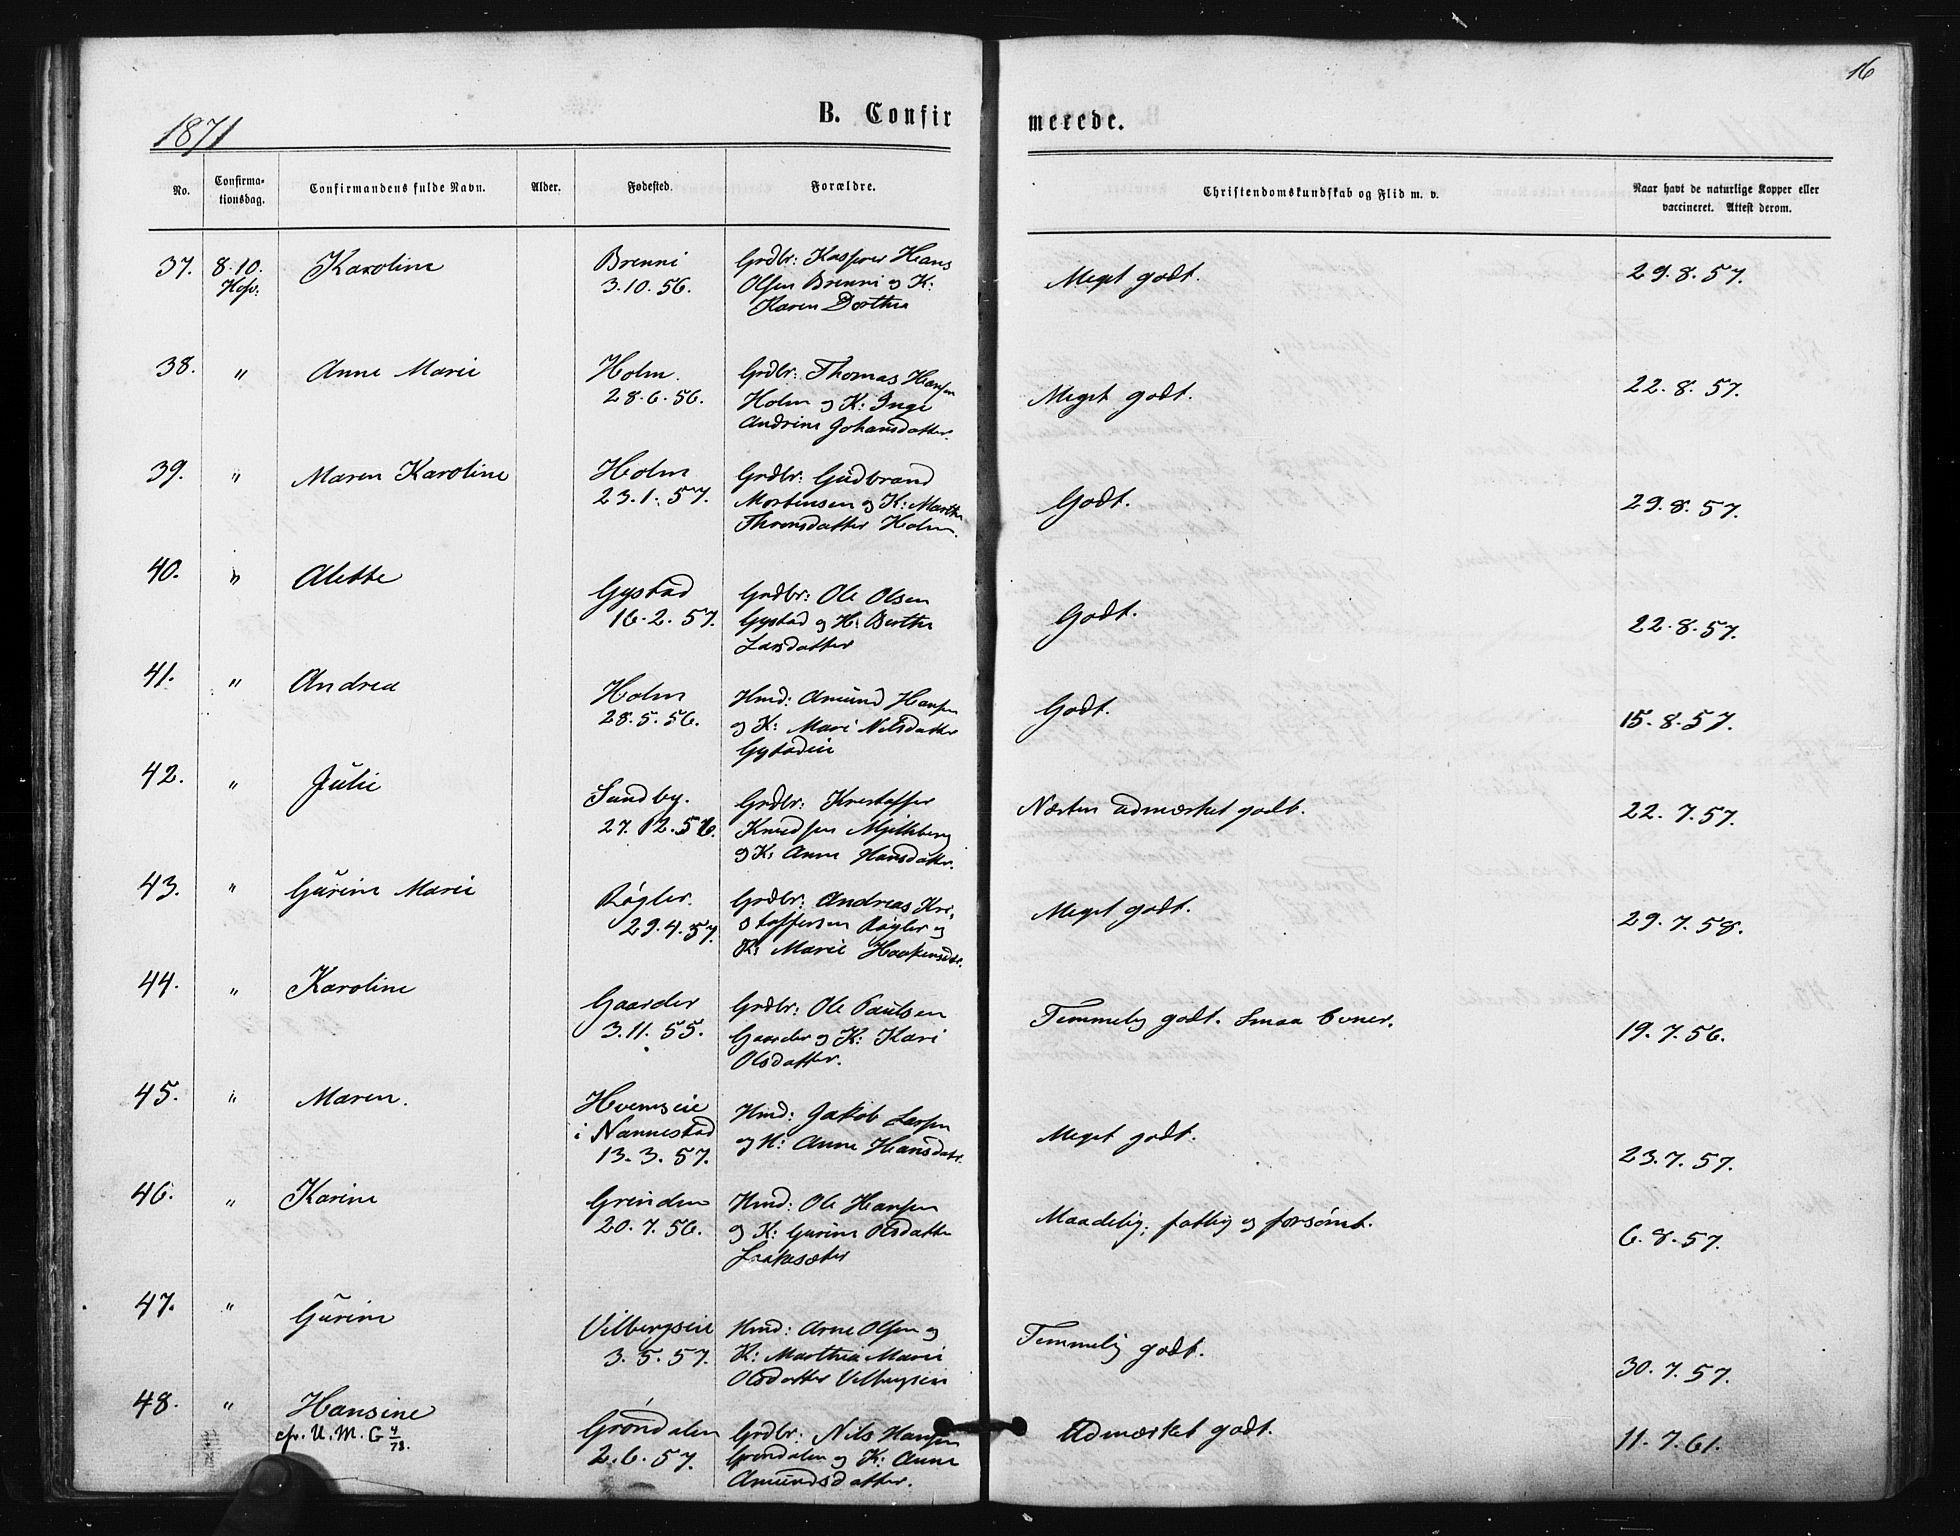 16
1871
B. Confirmerede.
No. Confirmationsdag. Confirmandens fulde Navn. Alder. Fødested. Forældre. Christendomskundskab og Flid m. v. Naar havt de naturlige Kopper eller vaccineret. Attest derom.
37. 8.10. Karoline Brenni Grdbr: Kasper Hans Meget godt. 29.8.57.
3.10.56. Olsen Brenni og K:
Karen Dorthea
38. " Anne Marie Holm. Grdbr: Thomas Hansen Meget godt. 22.8.57.
28.6.56. Holm og K: Inge
Andrine Johansdatter.
39. " Maren Karoline Holm Grdbr: Gudbrand Godt. 29.8.57.
23.1.57. Mortensen og K: Marthe
Thronsdatter Holm.
40. " Alette Gystad Grdbr: Ole Olsen Godt. 22.8.57.
16.2.57. Gystad og K: Berthe
Larsdatter
41. " Andrea Holm Hmd: Amund Hansen Godt. 15.8.57.
28.5.56. og K: Mari Nilsdatter
Gystadeie
42. " Julie Sundby. Grdbr: Kristoffer Næsten udmærket godt. 22.7.57.
27.12.56 Knudsen
og K: Anne Hansdatter.
43. " Gurine Marie Røgler. Grdbr: Andreas Kri- Meget godt. 29.7.58.
29.4.57. stoffersen Røgler og
K: Marie Haakensdtr.
44. " Karoline Gaarder Grdbr: Ole Paulsen Temmelig godt. Smaa Evner. 19.7.56.
3.11.55. Gaarder og K: Kari
Olsdatter.
45. " Maren. Hvemseie Hmd: Jakob Larsen Meget godt. 23.7.57.
i Nannestad og K: Anne Hansdatr.
13.3.57.
46. " Karine Grinden Hmd: Ole Hansen Maadelig; fattig og forsømt. 6.8.57.
20.7.56. og K: Gurine Olsdatter
47. " Gurine Vilbergseie Hmd: Arne Olsen og Temmelig godt. 30.7.57.
3.5.57. K: Marthea Marie
Olsdatter Vilbergseie
48. " Hansine Grøndalen Grdbr: Nils Hansen Udmærket godt. 11.7.61.
cfr. U. M. G 4/78. 2.6.57. Grøndalen og K: Anne
Amundsdatter.